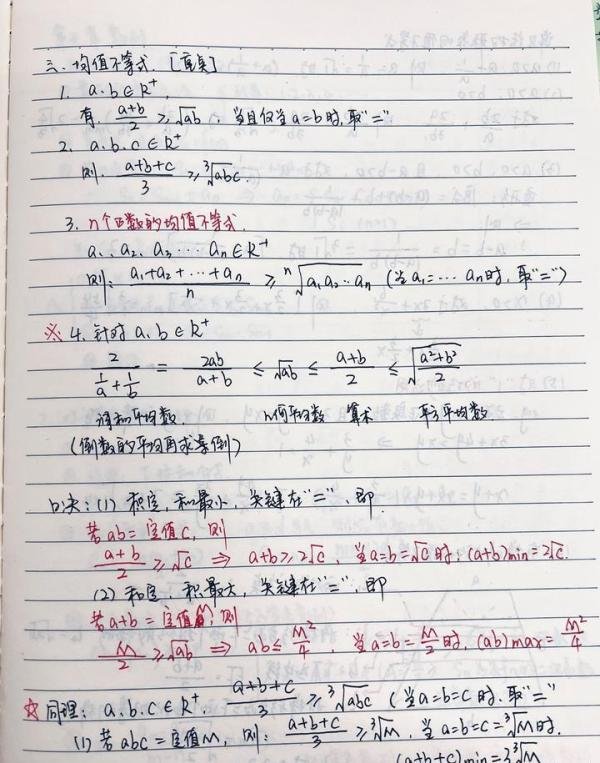 三. 均值不等式. [重点]
1. a.b∈R⁺
有 (a+b)/2 ≥ √ab ; 当且仅当a=b时,取"="
2. a.b.c∈R⁺
则. (a+b+c)/3 ≥ ³√abc.
3. n个正数的均值不等式.
a₁. a₂. a₃ ⋯ aₙ∈R⁺
则: (a₁+a₂+⋯+aₙ)/n ≥ ⁿ√(a₁a₂⋯aₙ) (当a₁=⋯aₙ时,取"=")
※ 4. 针对a.b∈R⁺
2/(1/a+1/b) = 2ab/(a+b) ≤ √ab ≤ (a+b)/2 ≤ √((a²+b²)/2)
调和平均数 几何平均数 算术 平方平均数
(倒数的平均再求亲倒)
口决: (1) 积定,和最小,关键在"=",即.
若ab=定值c,则
(a+b)/2 ≥ √c ⇒ a+b≥2√c, 当a=b=√c时,(a+b)min=2√c.
(2) 和定,积最大,关键在"=",即
若a+b=定值M,则
M/2 ≥ √ab ⇒ ab≤M²/4, 当a=b=M/2时,(ab)max=M²/4
☆ 同理: a.b.c∈R⁺. (a+b+c)/3 ≥ ³√abc (当a=b=c时.取"="
(1) 若abc=定值M, 则: (a+b+c)/3 ≥ ³√M, 当a=b=c=³√M时.
(a+b+c)min=3³√M